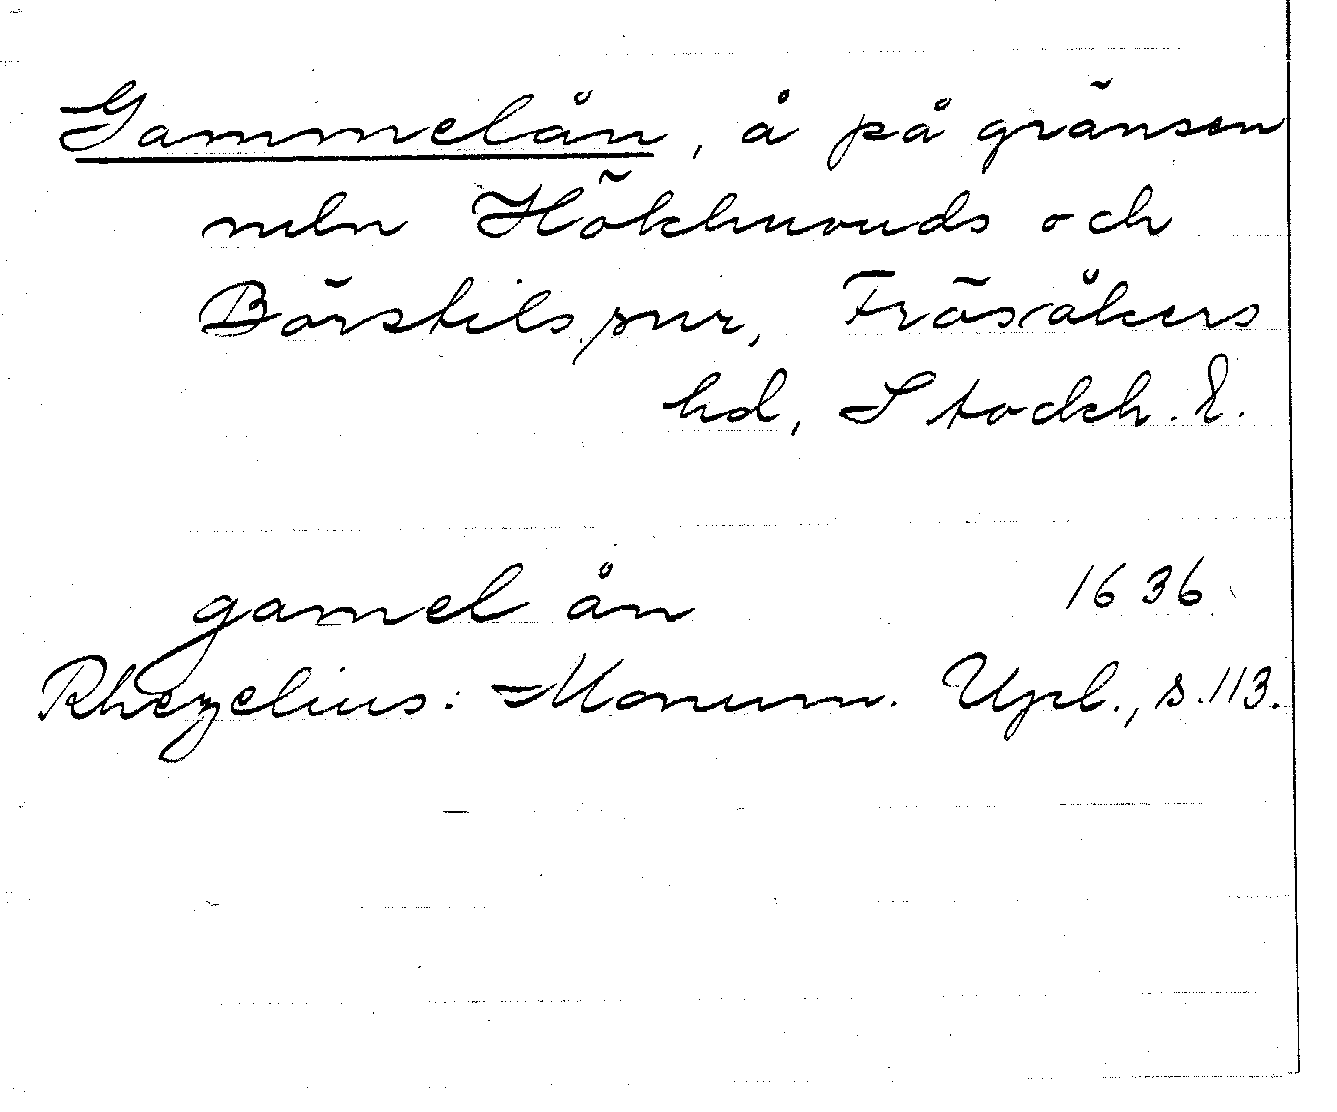 Gammelån, å på gränsen
mln Hökhuvuds och
Börstils snr, Frösåkers
hd, Stockh. l.
gamel ån 1636
Rhezelius: Monum. Upl., s. 113.